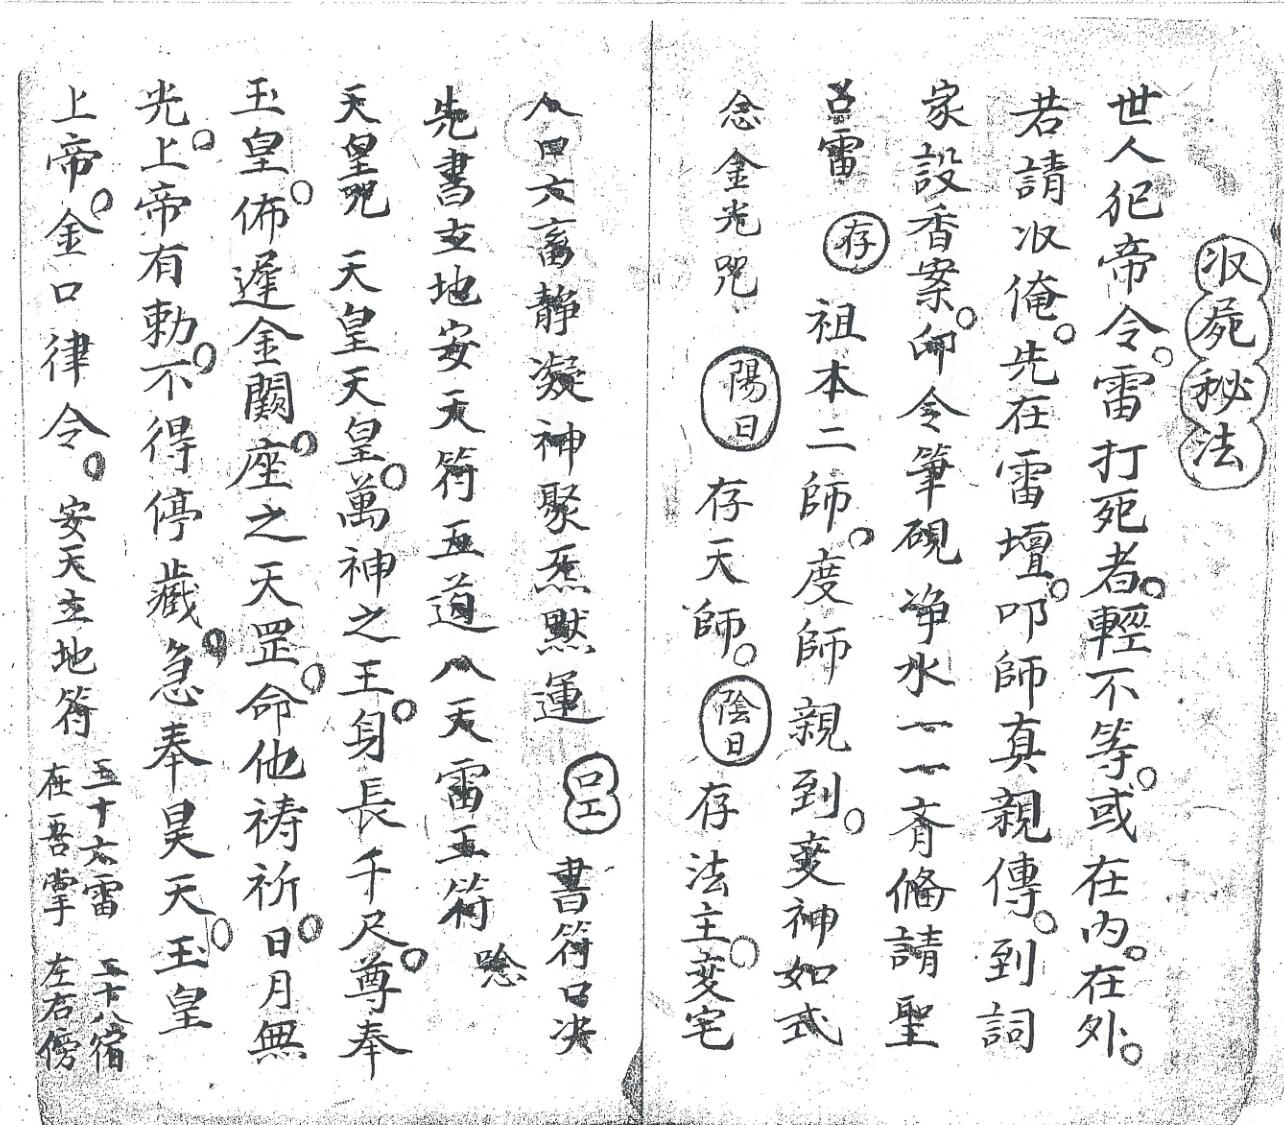 收屍秘法
世人犯帝令。雷打死者。輕不等。或在內。在外。
若請收俺。先在雷壇。叩師真親傳。到詞
家設香案。印令筆硯净水一一齊俻請聖
召雷 存 祖本二師。度師親到。变神如式
念金光咒 陽日 存天師。陰日 存法主。变宅
人口六畜静凝神聚炁默運 口工 書符口决
先書立地安天符五道八天雷王符 唸
天皇咒 天皇天皇。萬神之王。身長千尺。尊奉
玉皇。佈遲金闕。座之天罡。命他祷祈。日月無
光。上帝有勅。不得停藏。急奉昊天。玉皇
上帝。金口律令。安天立地符 五十六雷在吾掌 二十八宿左右傍